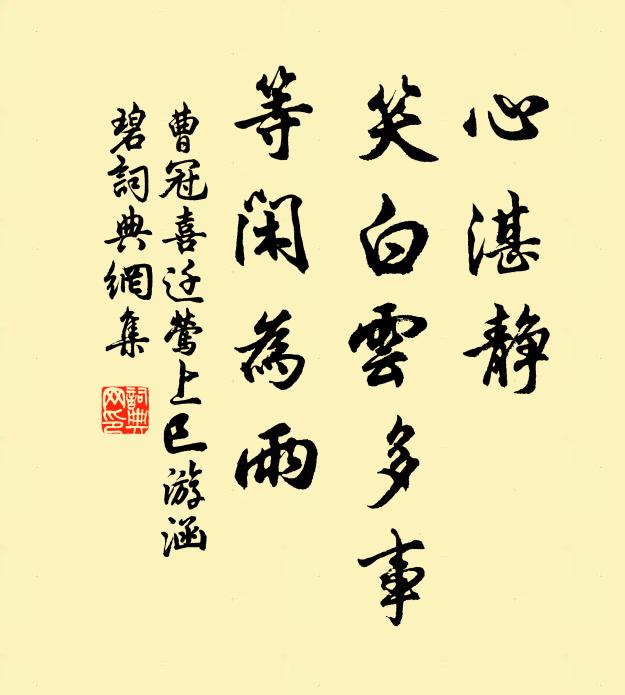 心湛静
笑白雲多事
等閑為雨
曹冠喜迁鶯上巳游涵
碧詞典網集
詞典
网印